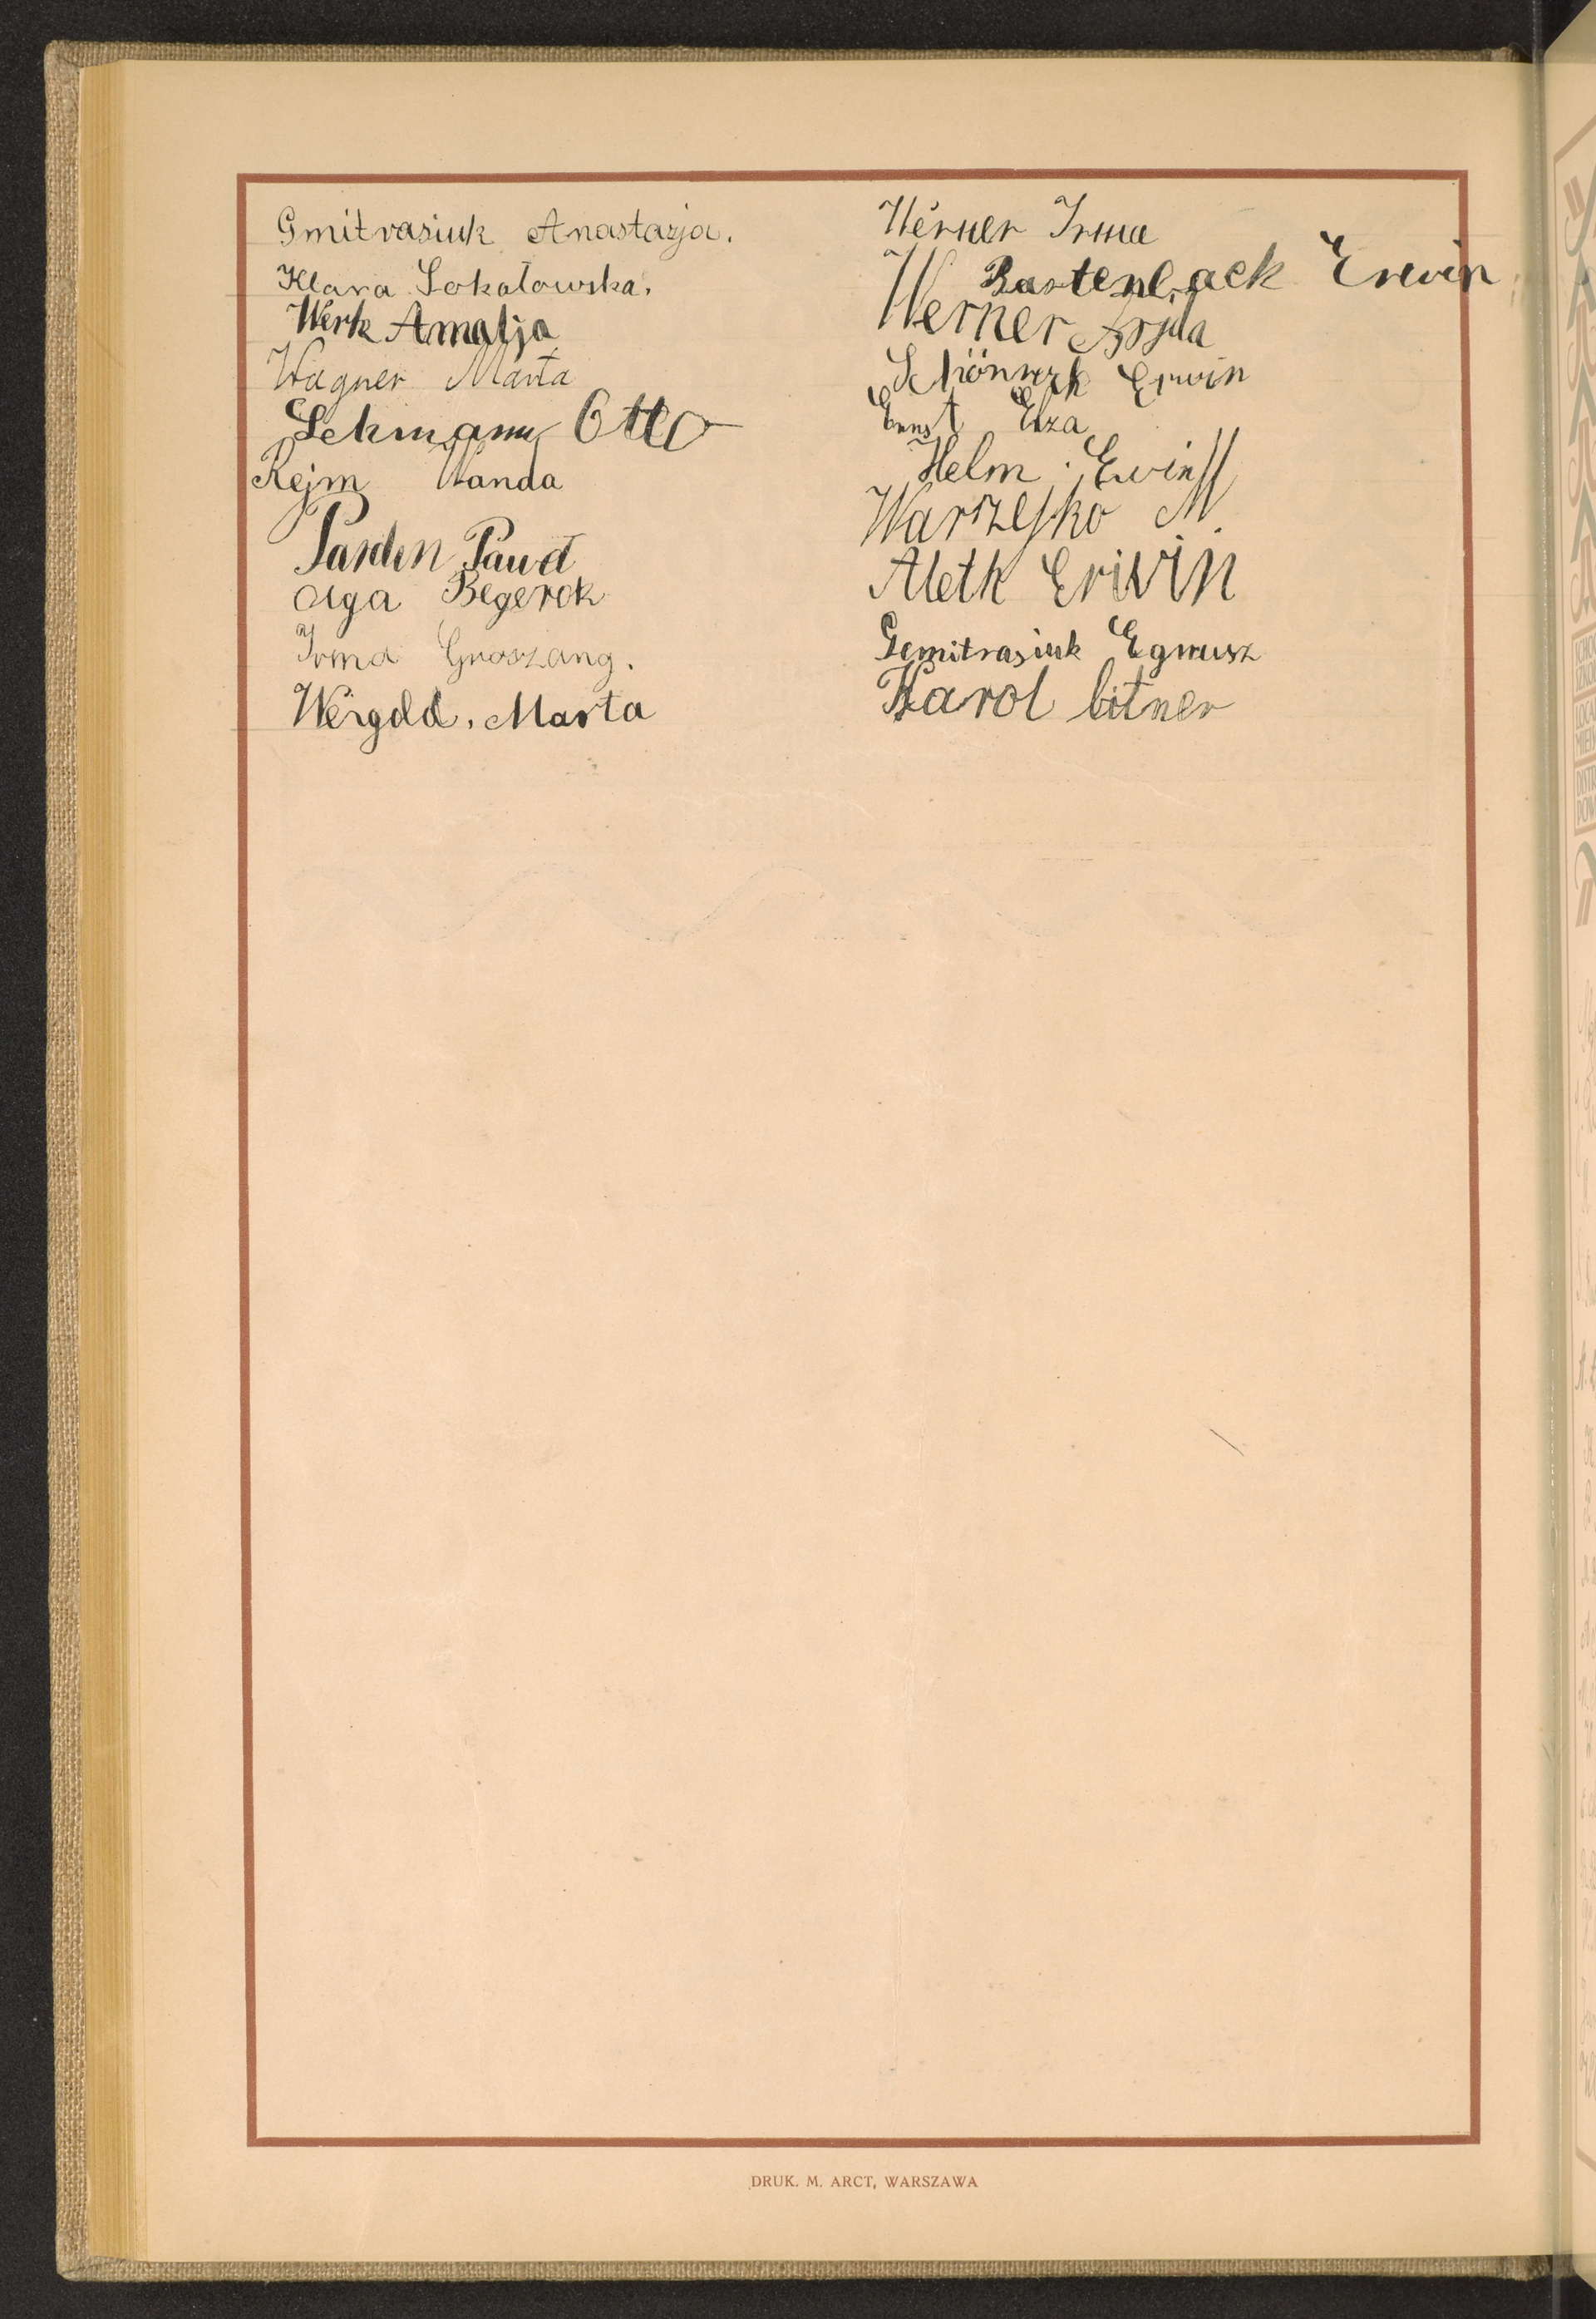 Gmitrasiuk Anastazja.
Klara Sokołowska.
Werk Amalja
Wagner Marta
Lehmann Otto
Rejm Wanda
Parden Paweł
Olga Begerok
Irma Groszang.
Wergold, Marta
Werner Irma
Bastenback Erwin
Werner
Schönrok Erwin
Ernst Elza
Helm Ewin
Warzeszko M.
Aleth Erivin
Gemitrasiuk
Karol bitner
DRUK. M. ARCT, WARSZAWA